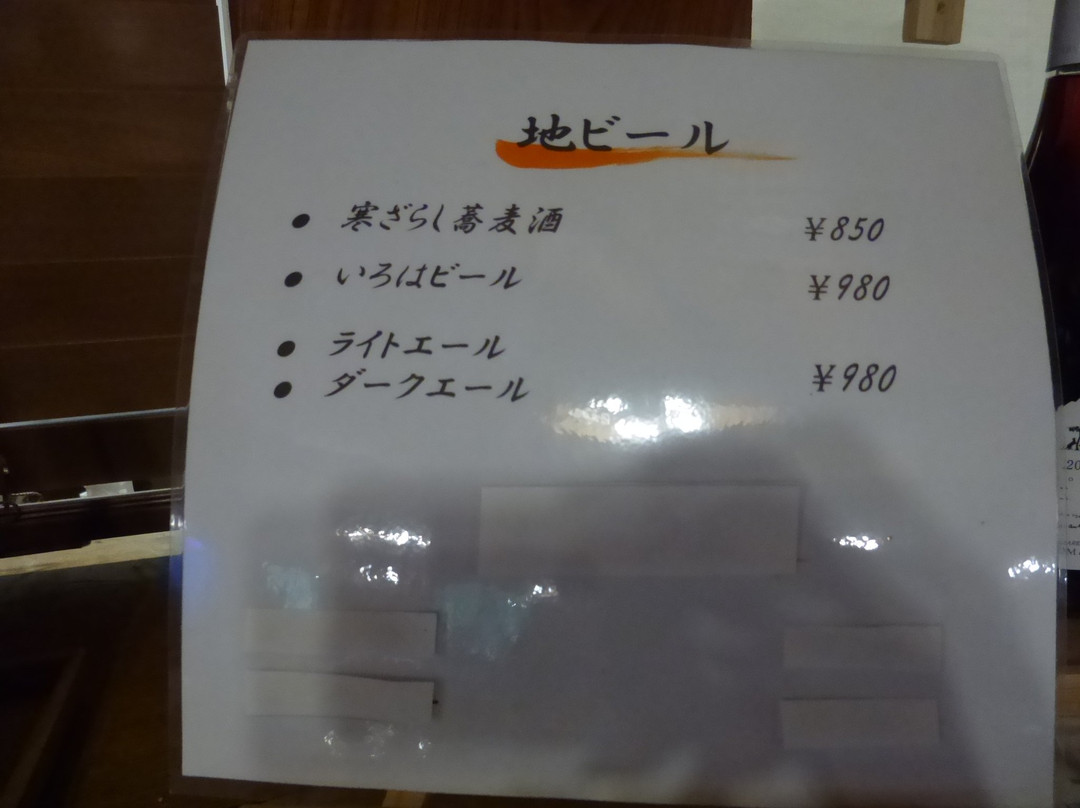 地ビール
● 寒ざらし蕎麦酒 ￥850
● いろはビール ￥980
● ライトエール
● ダークエール ￥980